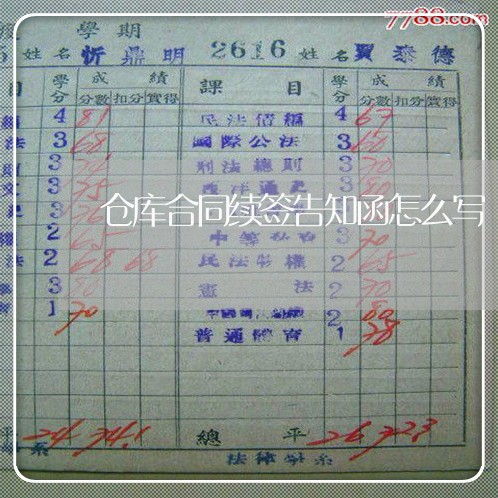 7788.com
學期
姓名忻鼎明 2616 姓名賈泰德
目 學分 成績 課目 學分 成績
分數 扣分 實得 分數 扣分 實得
4 81 民法債編 4 67
法 3 68 國際公法 3 60
3 刑法總則 3 70
文 3 75 西洋通史 3
仓库合同续签告知函怎么写
2 65 3 70
法 2 68 68 民法物權 2 65
3 80 憲法 2 70
1 70 2 80
普通體育 1 78
平 24 74.1 總平 26 72.3
系 法律學系